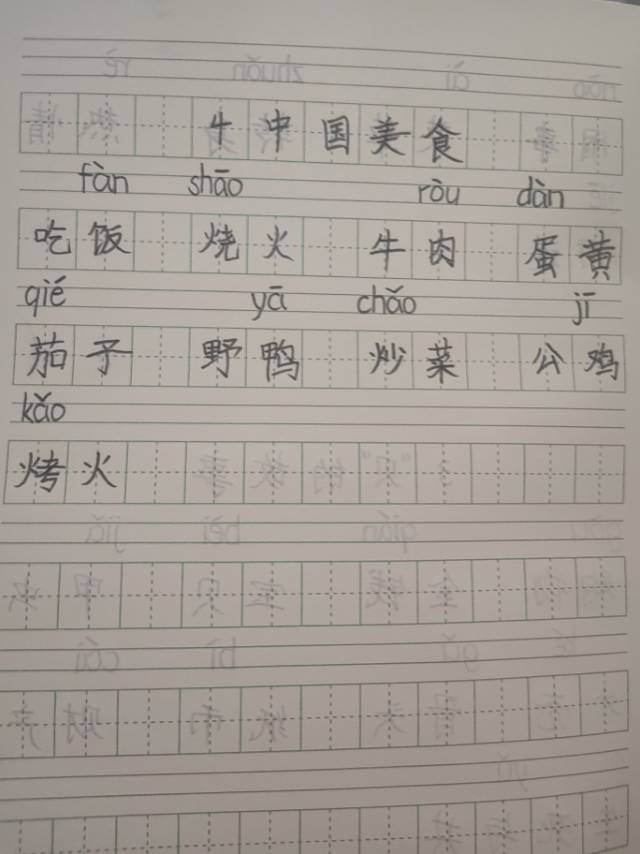 4 中国美食
fàn shāo ròu dàn
吃饭 烧火 牛肉 蛋黄
qié yā chǎo jī
茄子 野鸭 炒菜 公鸡
kǎo
烤火